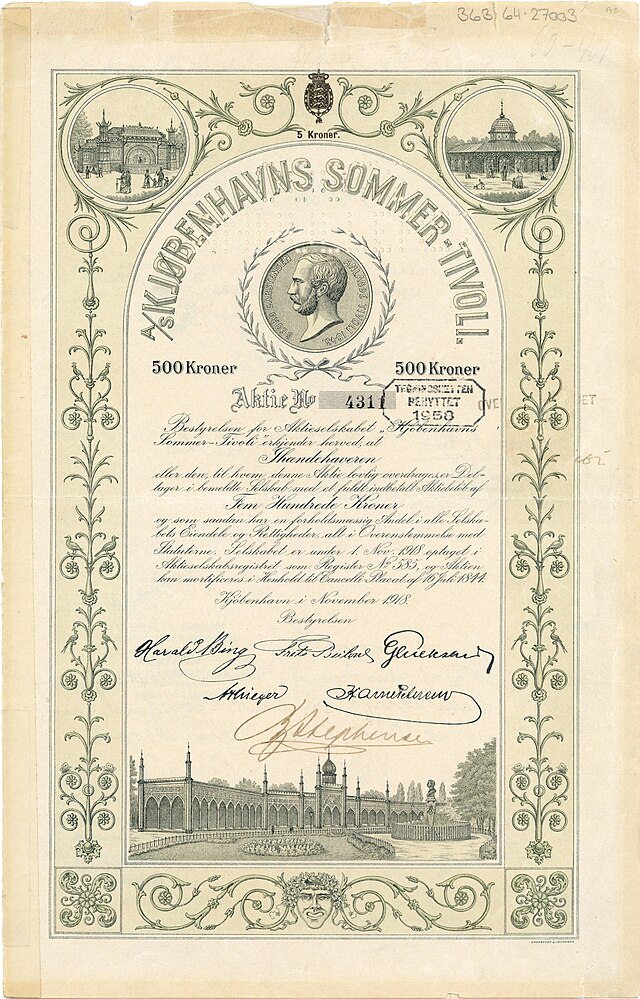 363/64-27003
5 Kroner.
A/S KJØBENHAVNS SOMMER-TIVOLI.
GEORG CARSTENSEN TIVOLI 1843.
500 Kroner
500 Kroner
Aktie No 4311
TEGNINGSRETTEN
BENYTTET
1958
Bestyrelsen for Aktieselskabet „Kjöbenhavns
Sommer-Tivoli" erkjender herved, at
Ihændehaveren
eller den, til hvem denne Aktie lovlig overdrages er Del-
tager i bemeldte Selskab med et fuldt indbetalt Aktiebeløb af
Fem Hundrede Kroner
og som saadan har en forholdsmæssig Andel i alle Selska-
bets Eiendele og Rettigheder, alt i Overensstemmelse med
Statuterne. Selskabet er under 1. Nov. 1918 optaget i
Aktieselskabsregistret som Register No 585, og Aktien
kan mortificeres i Henhold til Cancelli Placat af 16 Juli 1844.
Kjöbenhavn i November 1918.
Bestyrelsen
Harald Bing